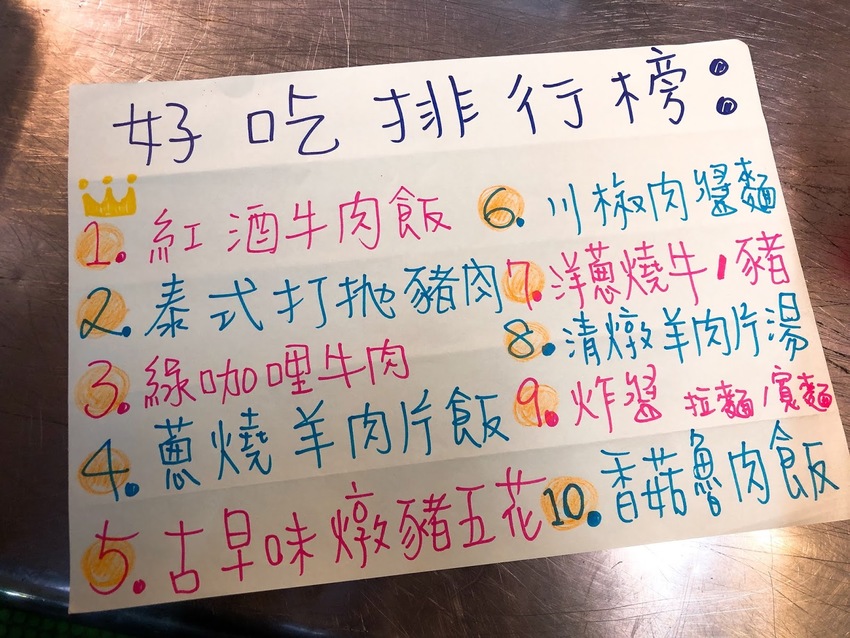 好吃排行榜:
1. 紅酒牛肉飯
2. 泰式打抛豬肉
3. 綠咖哩牛肉
4. 蔥燒羊肉片飯
5. 古早味燉豬五花
6. 川椒肉醬麵
7. 洋蔥燒牛/豬
8. 清燉羊肉片湯
9. 炸醬 拉麵/寬麵
10. 香菇魯肉飯